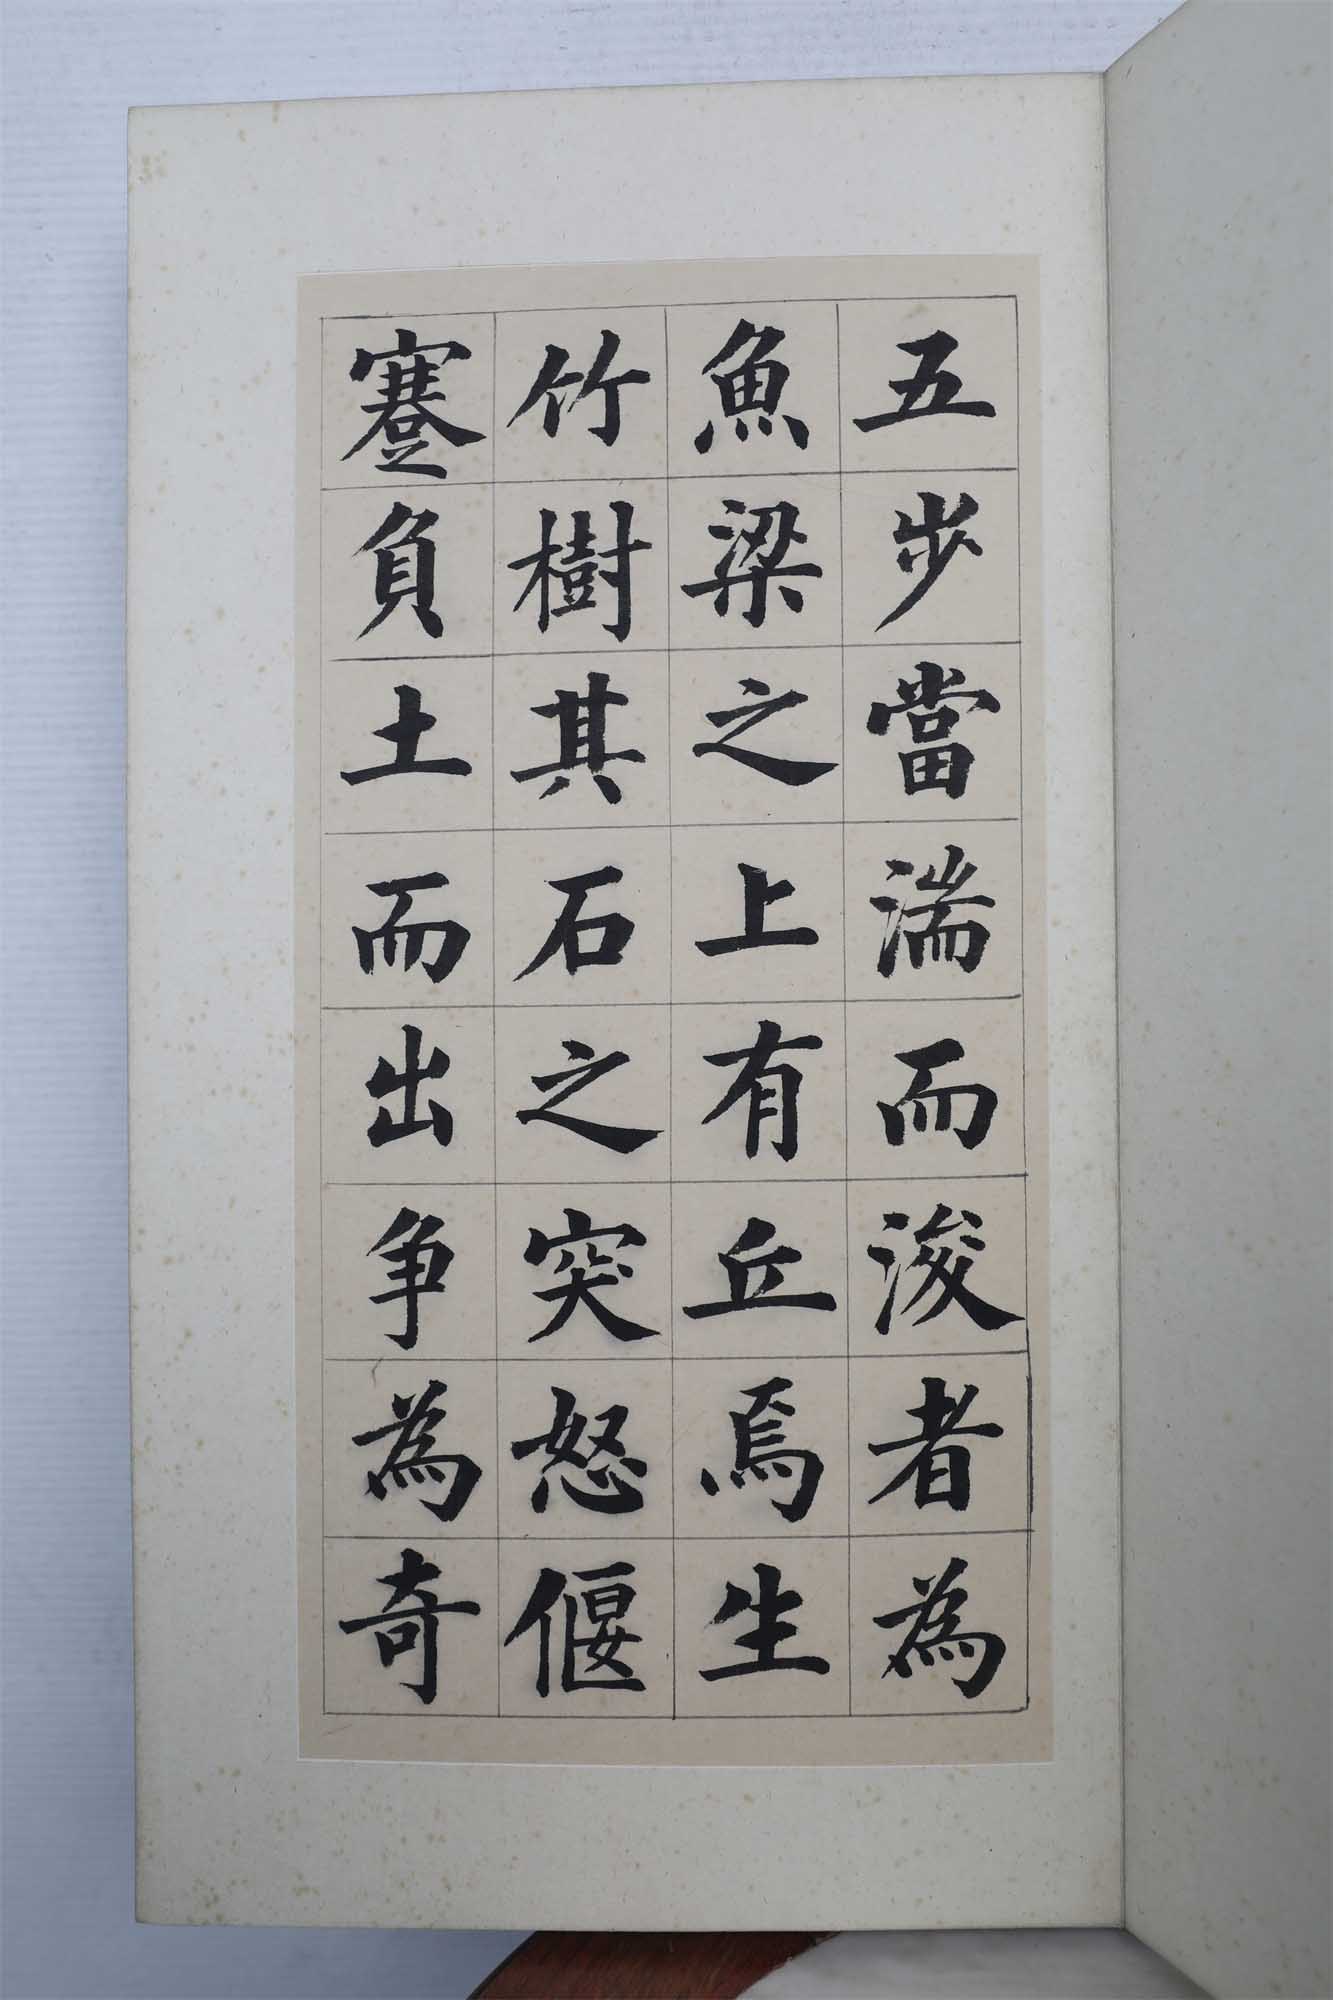 五步當湍而浚者為
魚梁之上有丘焉生
竹樹其石之突怒偃
蹇負土而出争為奇